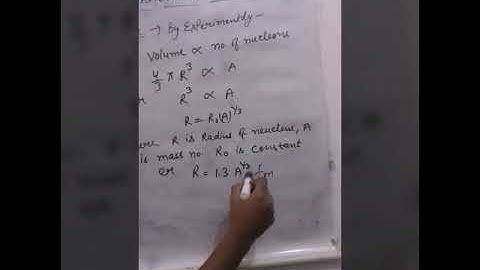 → By Experimently -
Volume ∝ no. of nucleons
4/3 π R³ ∝ A
or R³ ∝ A
R = R₀(A)^1/3
where R is Radius of neucleus, A
is mass no. R₀ is constant
or R = 1.3 A^1/3 fm